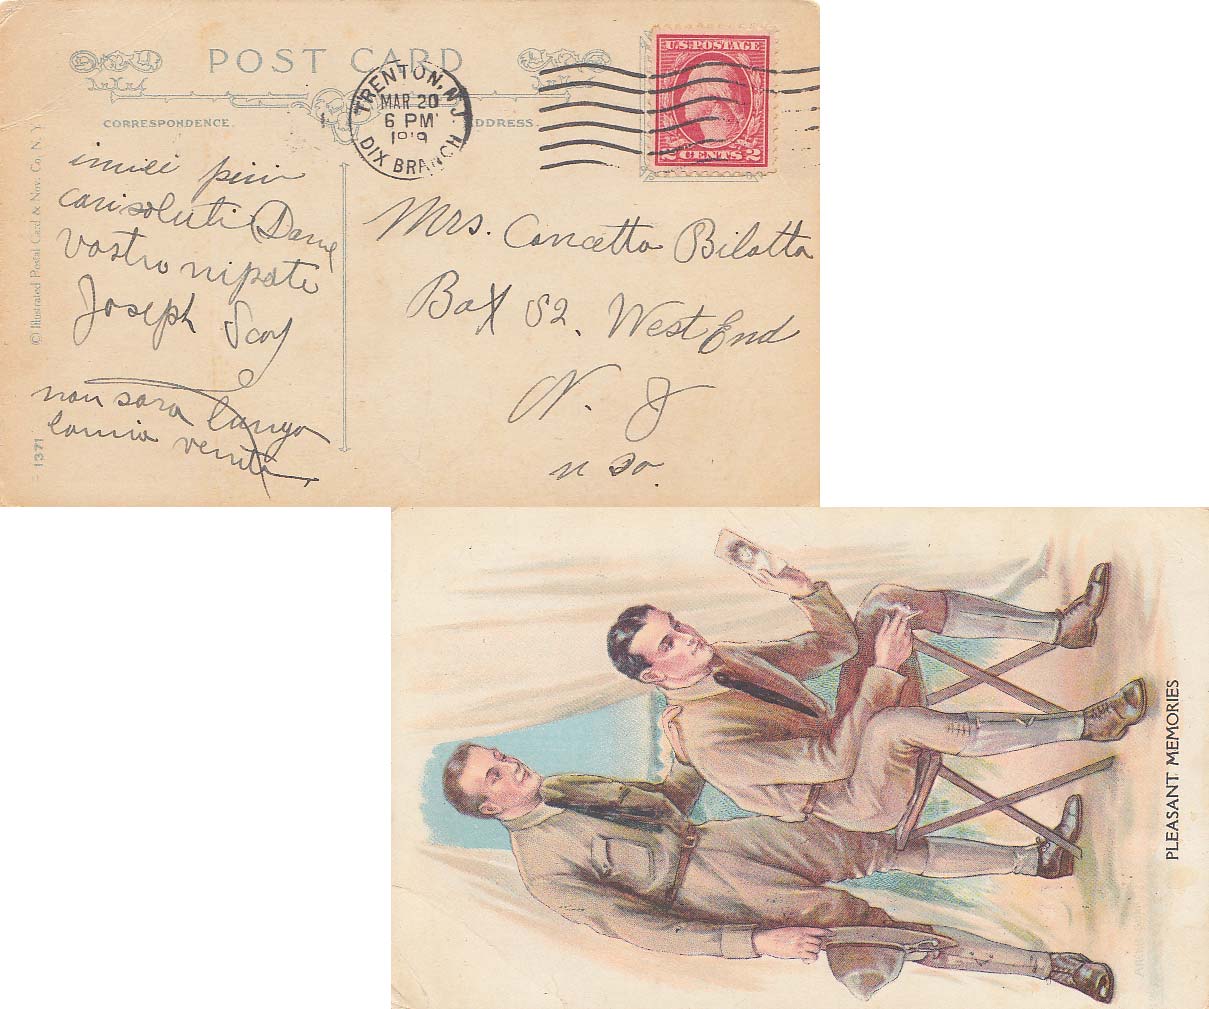 POST CARD
CORRESPONDENCE.
ADDRESS.
TRENTON, N.J.
MAR 20
6 PM
1919
DIX BRANCH
U.S. POSTAGE
2 CENTS 2
© Illustrated Postal Card & Nov. Co. N. Y.
1371
cari saluti Dame
vostro nipote
Joseph
non sara lungo
la mia venuta
Mrs. Concetta Bilotta
Box 52. West End
N. J
PLEASANT MEMORIES